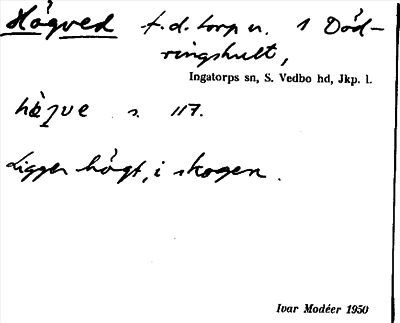 Högved f.d. torp u. 1 Död-
ringshult,
Ingatorps sn, S. Vedbo hd, Jkp. l.
s. 117.
Ligger högt, i skogen.
Ivar Modéer 1950